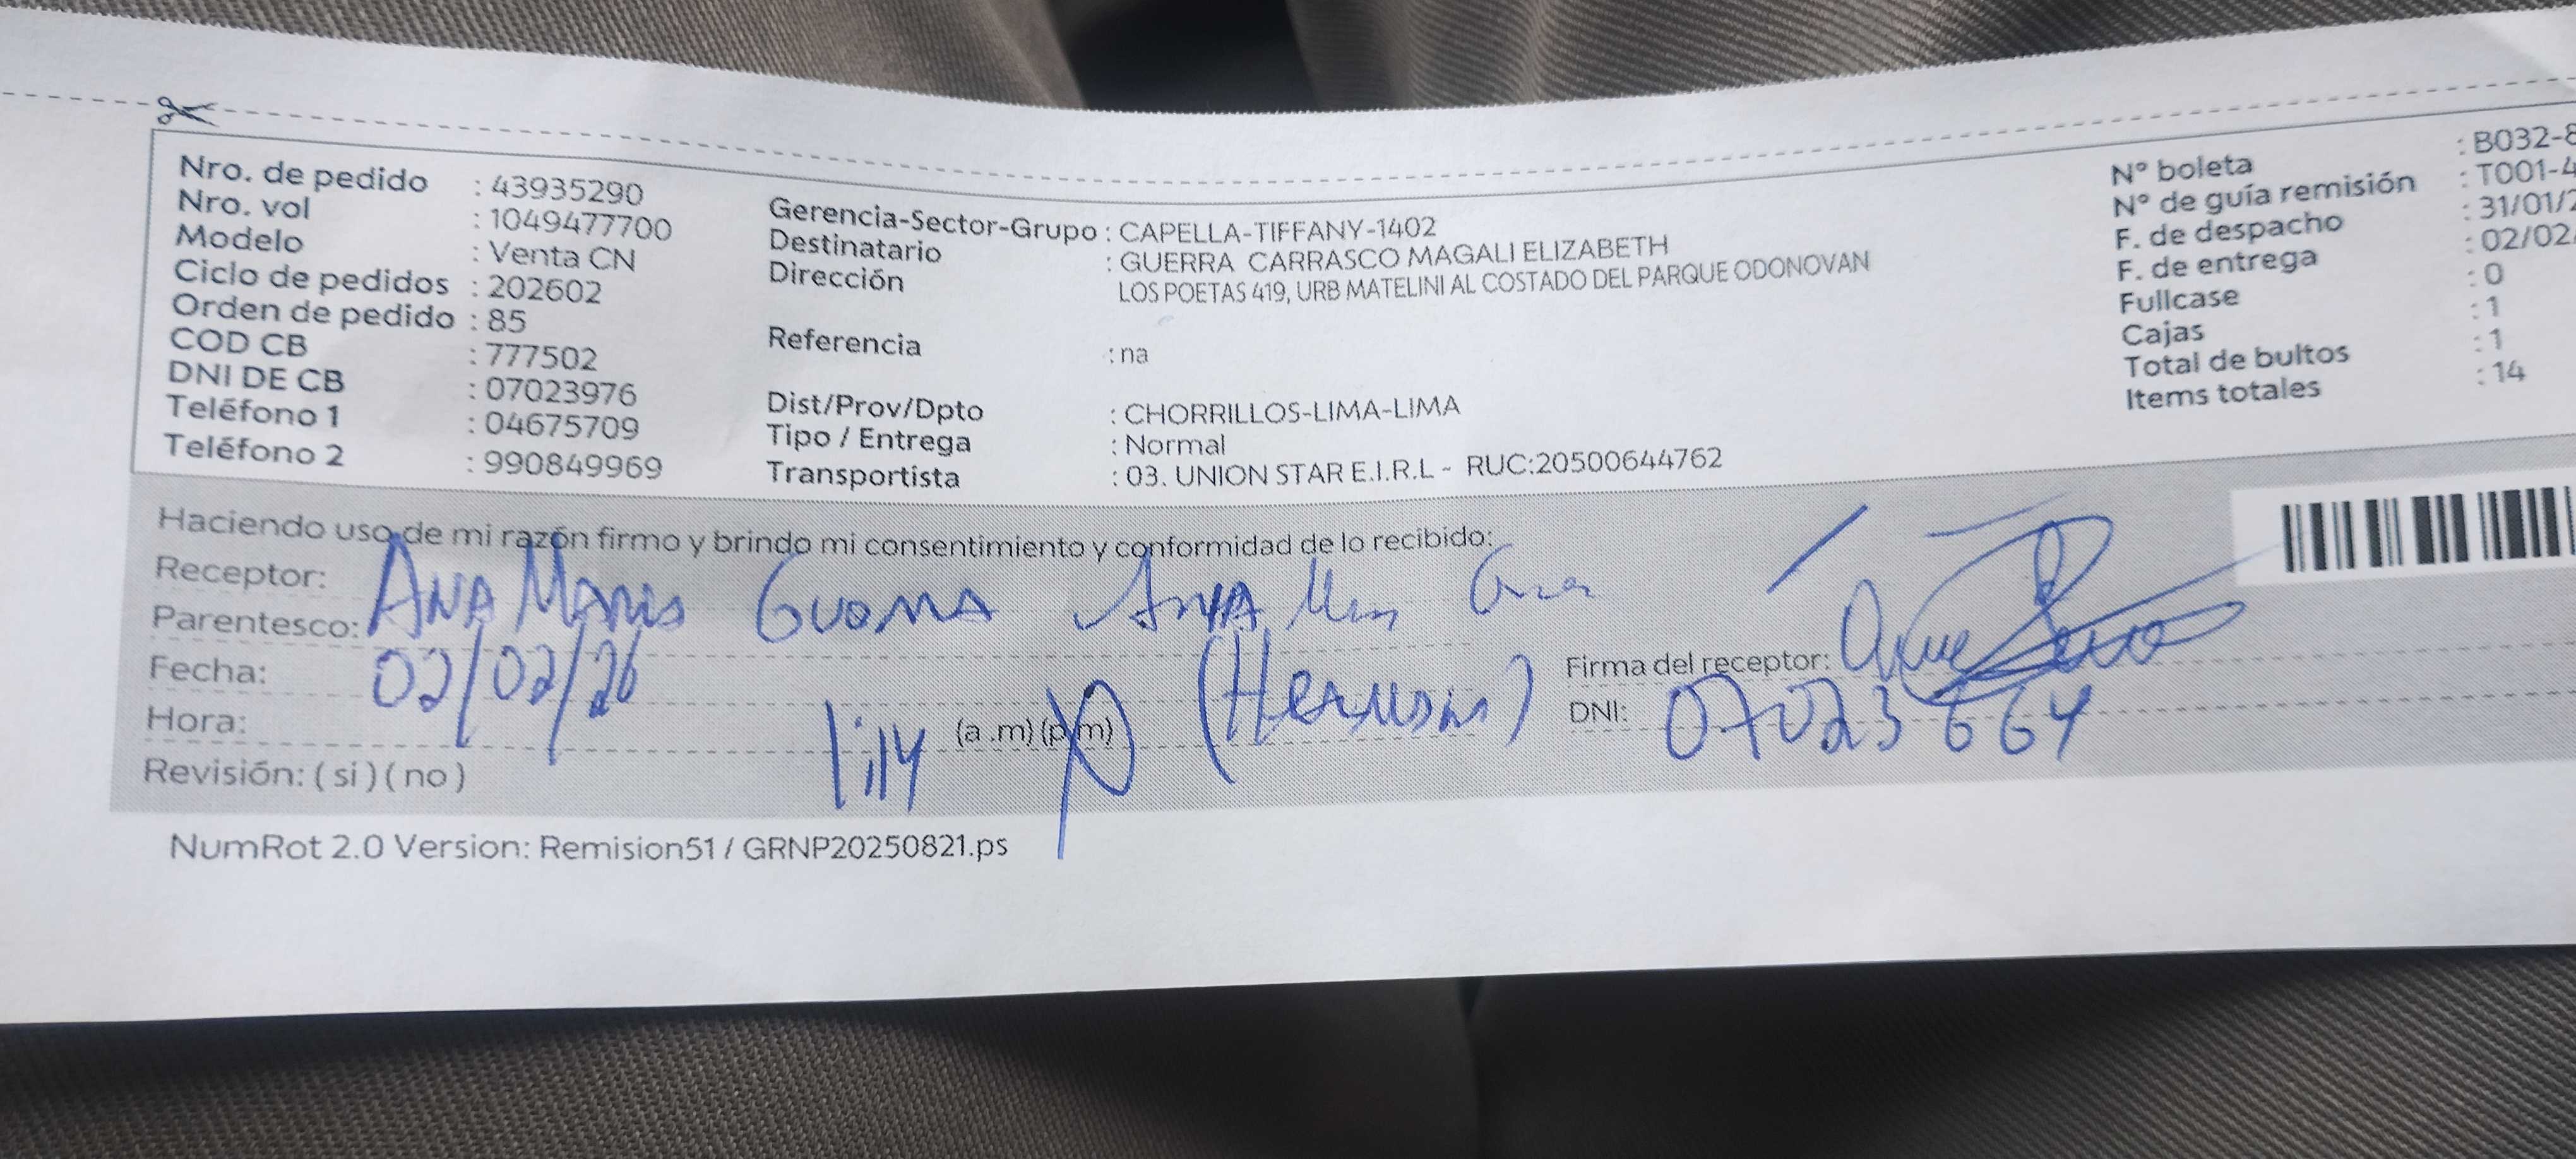 Nro. de pedido : 43935290
Nro. vol : 1049477700
Modelo : Venta CN
Ciclo de pedidos : 202602
Orden de pedido : 85
COD CB : 777502
DNI DE CB : 07023976
Teléfono 1 : 04675709
Teléfono 2 : 990849969
Gerencia-Sector-Grupo : CAPELLA-TIFFANY-1402
Destinatario : GUERRA CARRASCO MAGALI ELIZABETH
Dirección LOS POETAS 419, URB MATELINI AL COSTADO DEL PARQUE ODONOVAN
Referencia : na
Dist/Prov/Dpto : CHORRILLOS-LIMA-LIMA
Tipo / Entrega : Normal
Transportista : 03. UNION STAR E.I.R.L - RUC:20500644762
N° boleta : B032-8
N° de guía remisión : T001-4
F. de despacho : 31/01/2
F. de entrega : 02/02/
Fullcase : 0
Cajas : 1
Total de bultos : 1
Items totales : 14
Haciendo uso de mi razón firmo y brindo mi consentimiento y conformidad de lo recibido:
Receptor: ANA Maria Guerra
Parentesco: (Hermana)
Fecha: 02/02/26
Hora: (a .m) (p.m)
Revisión: ( si ) ( no )
Firma del receptor:
DNI: 07023664
NumRot 2.0 Version: Remision51 / GRNP20250821.ps